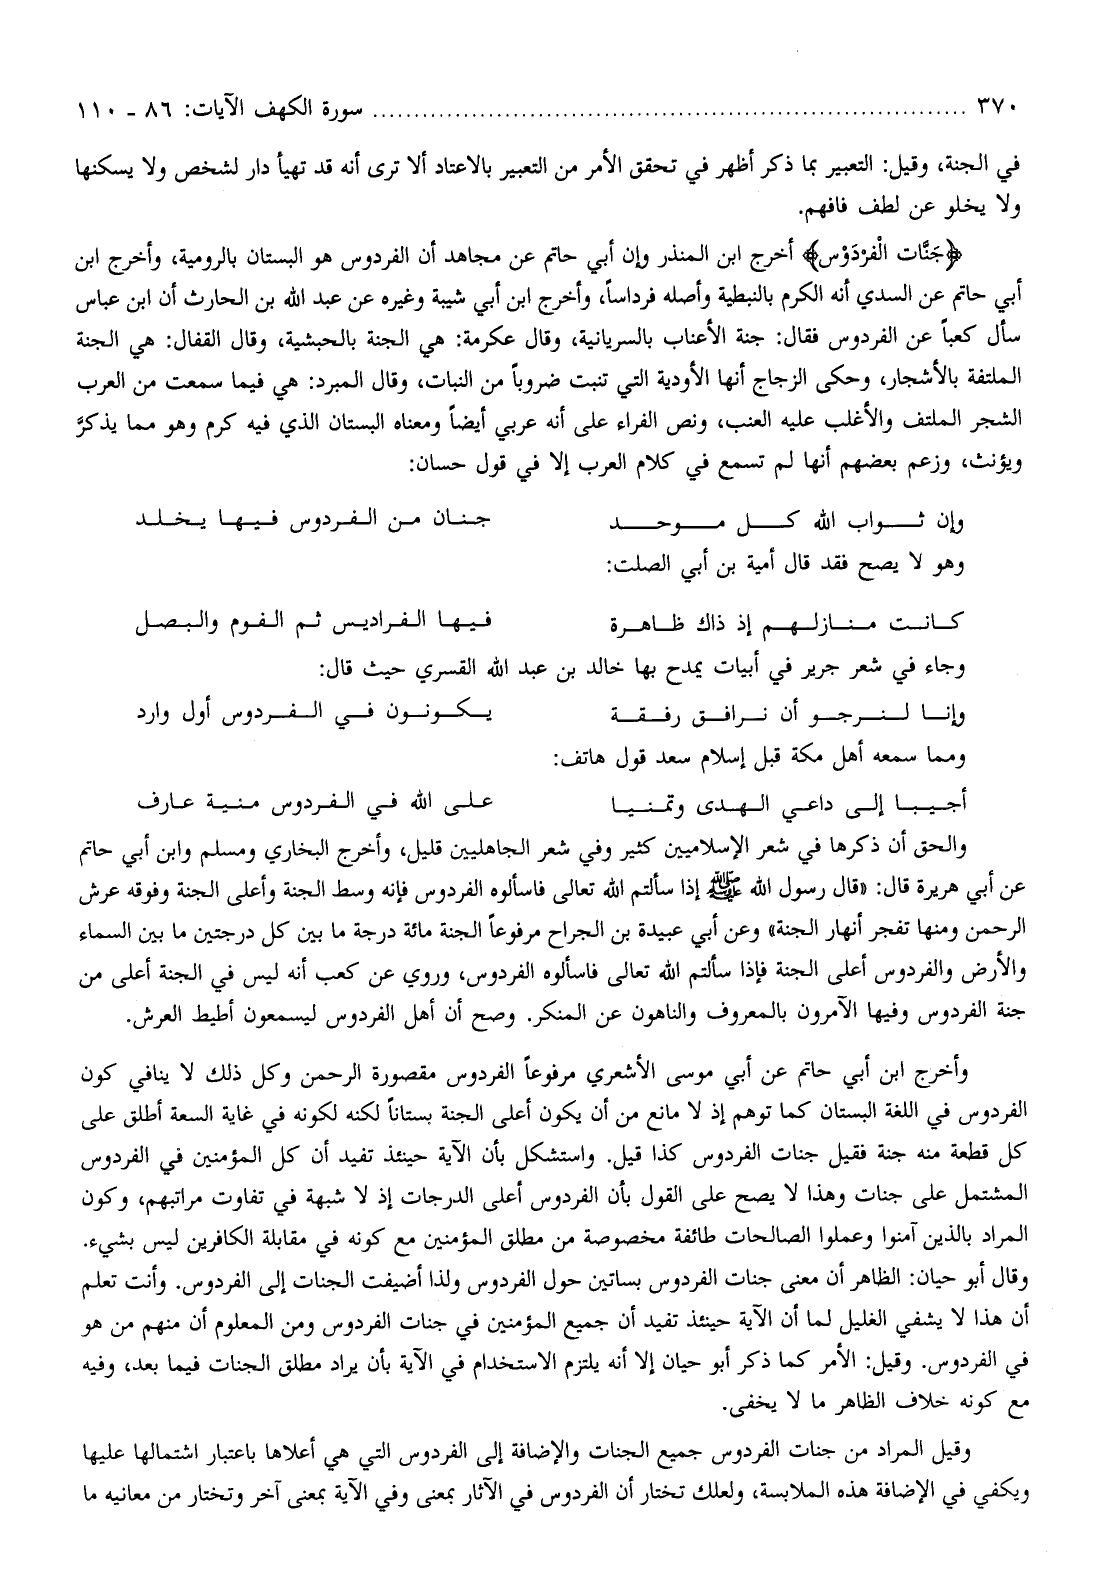 ٣٧٠ ............................................................ سورة الكهف الآيات: ٨٦ - ١١٠
في الجنة، وقيل: التعبير بما ذكر أظهر في تحقق الأمر من التعبير بالاعتاد ألا ترى أنه قد تهيأ دار لشخص ولا يسكنها
ولا يخلو عن لطف فافهم.
﴿جَنَّات الْفرْدَوْس﴾ أخرج ابن المنذر وإن أبي حاتم عن مجاهد أن الفردوس هو البستان بالرومية، وأخرج ابن
أبي حاتم عن السدي أنه الكرم بالنبطية وأصله فرداساً، وأخرج ابن أبي شيبة وغيره عن عبد الله بن الحارث أن ابن عباس
سأل كعباً عن الفردوس فقال: جنة الأعناب بالسريانية، وقال عكرمة: هي الجنة بالحبشية، وقال القفال: هي الجنة
الملتفة بالأشجار، وحكى الزجاج أنها الأودية التي تنبت ضروباً من النبات، وقال المبرد: هي فيما سمعت من العرب
الشجر الملتف والأغلب عليه العنب، ونص الفراء على أنه عربي أيضاً ومعناه البستان الذي فيه كرم وهو مما يذكرَّ
ويؤنث، وزعم بعضهم أنها لم تسمع في كلام العرب إلا في قول حسان:
وإن ثواب الله كل موحد جنان من الفردوس فيها يخلد
وهو لا يصح فقد قال أمية بن أبي الصلت:
كانت منازلهم إذ ذاك ظاهرة فيها الفراديس ثم الفوم والبصل
وجاء في شعر جرير في أبيات يمدح بها خالد بن عبد الله القسري حيث قال:
وإنا لنرجو أن نرافق رفقة يكونون في الفردوس أول وارد
ومما سمعه أهل مكة قبل إسلام سعد قول هاتف:
أجيبا إلى داعي الهدى وتمنيا على الله في الفردوس منية عارف
والحق أن ذكرها في شعر الإسلاميين كثير وفي شعر الجاهليين قليل، وأخرج البخاري ومسلم وابن أبي حاتم
عن أبي هريرة قال: «قال رسول الله ﷺ إذا سألتم الله تعالى فاسألوه الفردوس فإنه وسط الجنة وأعلى الجنة وفوقه عرش
الرحمن ومنها تفجر أنهار الجنة» وعن أبي عبيدة بن الجراح مرفوعاً الجنة مائة درجة ما بين كل درجتين ما بين السماء
والأرض والفردوس أعلى الجنة فإذا سألتم الله تعالى فاسألوه الفردوس، وروي عن كعب أنه ليس في الجنة أعلى من
جنة الفردوس وفيها الآمرون بالمعروف والناهون عن المنكر. وصح أن أهل الفردوس ليسمعون أطيط العرش.
وأخرج ابن أبي حاتم عن أبي موسى الأشعري مرفوعاً الفردوس مقصورة الرحمن وكل ذلك لا ينافي كون
الفردوس في اللغة البستان كما توهم إذ لا مانع من أن يكون أعلى الجنة بستاناً لكنه لكونه في غاية السعة أطلق على
كل قطعة منه جنة فقيل جنات الفردوس كذا قيل. واستشكل بأن الآية حينئذ تفيد أن كل المؤمنين في الفردوس
المشتمل على جنات وهذا لا يصح على القول بأن الفردوس أعلى الدرجات إذ لا شبهة في تفاوت مراتبهم، وكون
المراد بالذين آمنوا وعملوا الصالحات طائفة مخصوصة من مطلق المؤمنين مع كونه في مقابلة الكافرين ليس بشيء.
وقال أبو حيان: الظاهر أن معنى جنات الفردوس بساتين حول الفردوس ولذا أضيفت الجنات إلى الفردوس. وأنت تعلم
أن هذا لا يشفي الغليل لما أن الآية حينئذ تفيد أن جميع المؤمنين في جنات الفردوس ومن المعلوم أن منهم من هو
في الفردوس. وقيل: الأمر كما ذكر أبو حيان إلا أنه يلتزم الاستخدام في الآية بأن يراد مطلق الجنات فيما بعد، وفيه
مع كونه خلاف الظاهر ما لا يخفى.
وقيل المراد من جنات الفردوس جميع الجنات والإضافة إلى الفردوس التي هي أعلاها باعتبار اشتمالها عليها
ويكفي في الإضافة هذه الملابسة، ولعلك تختار أن الفردوس في الآثار بمعنى وفي الآية بمعنى آخر وتختار من معانيه ما